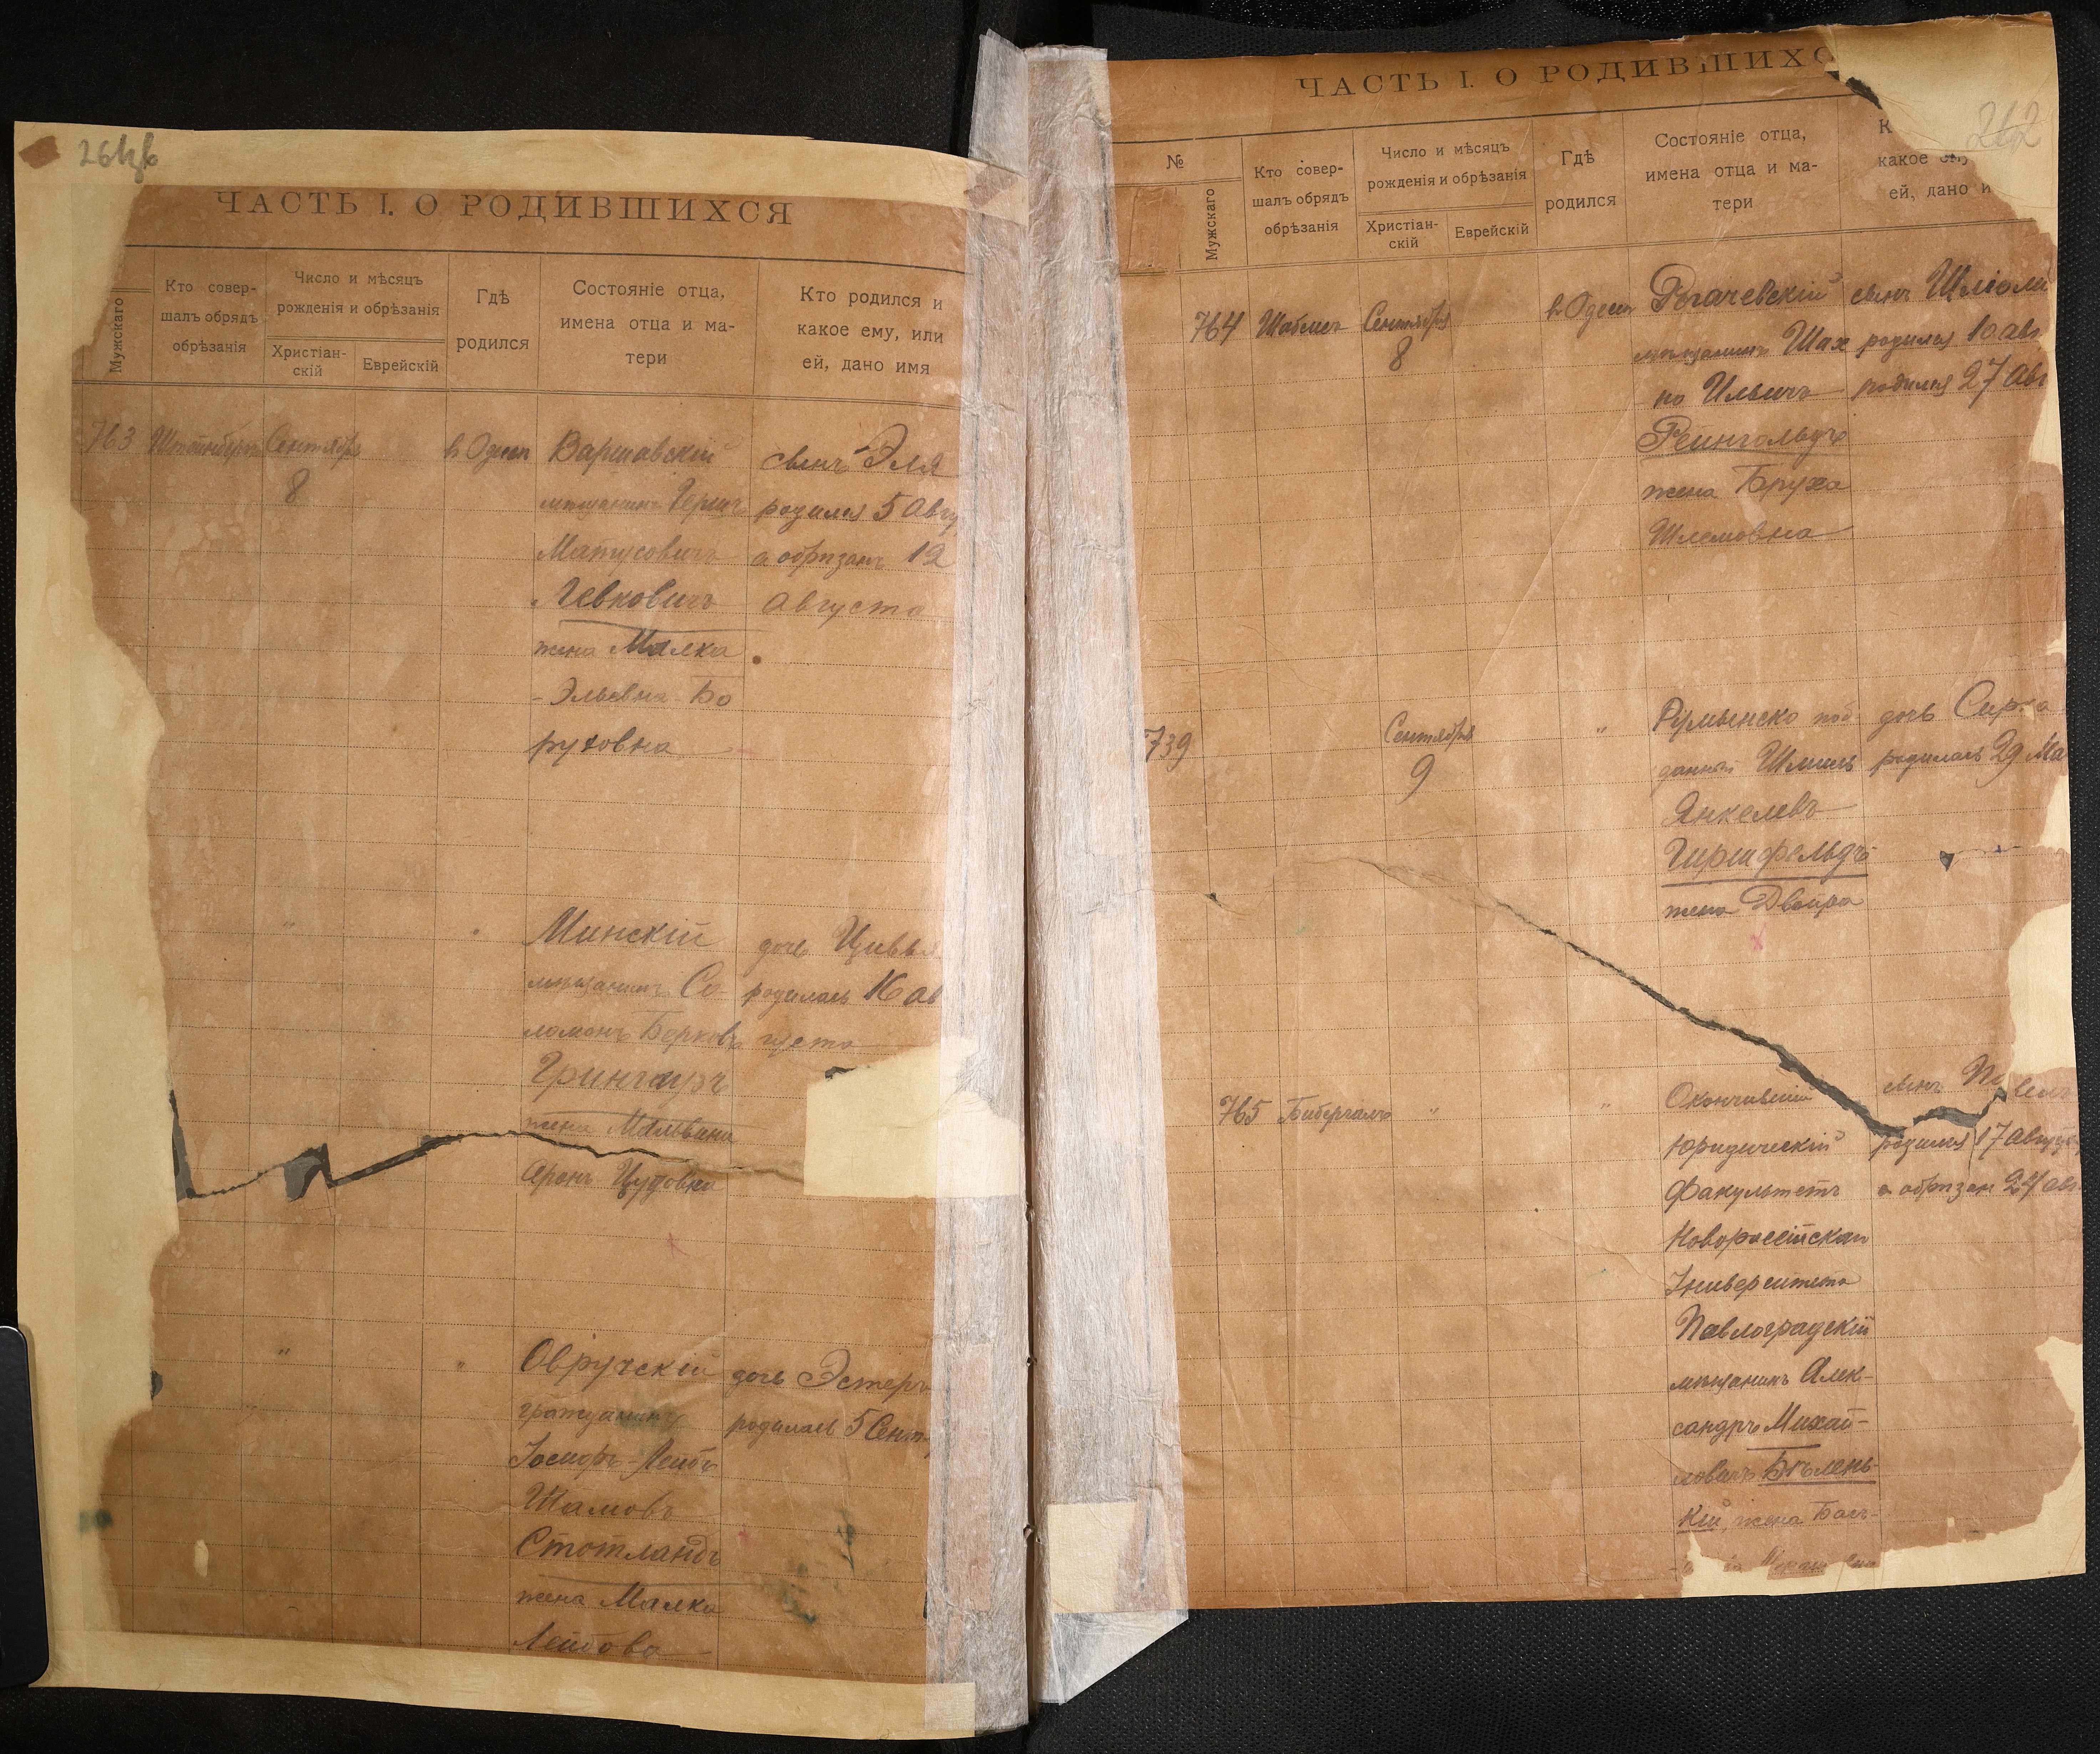 ЧАСТЬ I. О РОДИВШИХСЯ
Мужскаго
Кто совер-
шалъ обрядъ
обрѣзанія
Число и мѣсяцъ
рожденія и обрѣзанія
Христіан-
скій
Еврейскій
Гдѣ
родился
Состояніе отца,
имена отца и ма-
тери
Кто родился и
какое ему, или
ей, дано имя
763
Сентября
8
в Одессѣ
Варшавскій
мѣщанинъ Герш
Матусовичъ
Левковичъ
жена Малка
-Эльевна-Бо
руховна
сынъ Эля
родился 5 Авгу
а обрѣзанъ 12
Августа
" "
Минскій
мѣщанинъ Со
ломонъ Берковъ
жена Мальвина
дочь Цивья
родилась 16 ав
густа
" "
Овручскій
гражданинъ
Іосифъ-Лейбъ
Стотландъ
жена Малка
Лейбова
дочь Эстеръ
родилась 5 Сент
262
ЧАСТЬ I. О РОДИВШИХС
№
Мужскаго
Кто совер-
шалъ обрядъ
обрѣзанія
Число и мѣсяцъ
рожденія и обрѣзанія
Христіан-
скій
Еврейскій
Гдѣ
родился
Состояніе отца,
имена отца и ма-
тери
К
какое ему
ей, дано и
764
Сентября
8
в Одессѣ
Рогачевскій
мѣщанинъ Шах
но Ильичъ
Рейнгольдъ
жена Бруха
Шлемовна
сынъ Шліома
родился 10 авг
родился 27 Авг
739
Сентября
9
"
Румынско под
данный Шмиль
Янкелевъ
Гиршфельдъ
жена Двойра
дочь Сура
родилась 29 Ма
765 Бибергалъ
" "
Окончившій
Юридическій
Факультетъ
Новороссійскаго
Университета
Павлоградскій
мѣщанинъ Алек-
сандръ Михай-
ловичъ Бѣлень-
кій, жена Бась-
сынъ
родился 17 Августа
а обрѣзан 24 авг